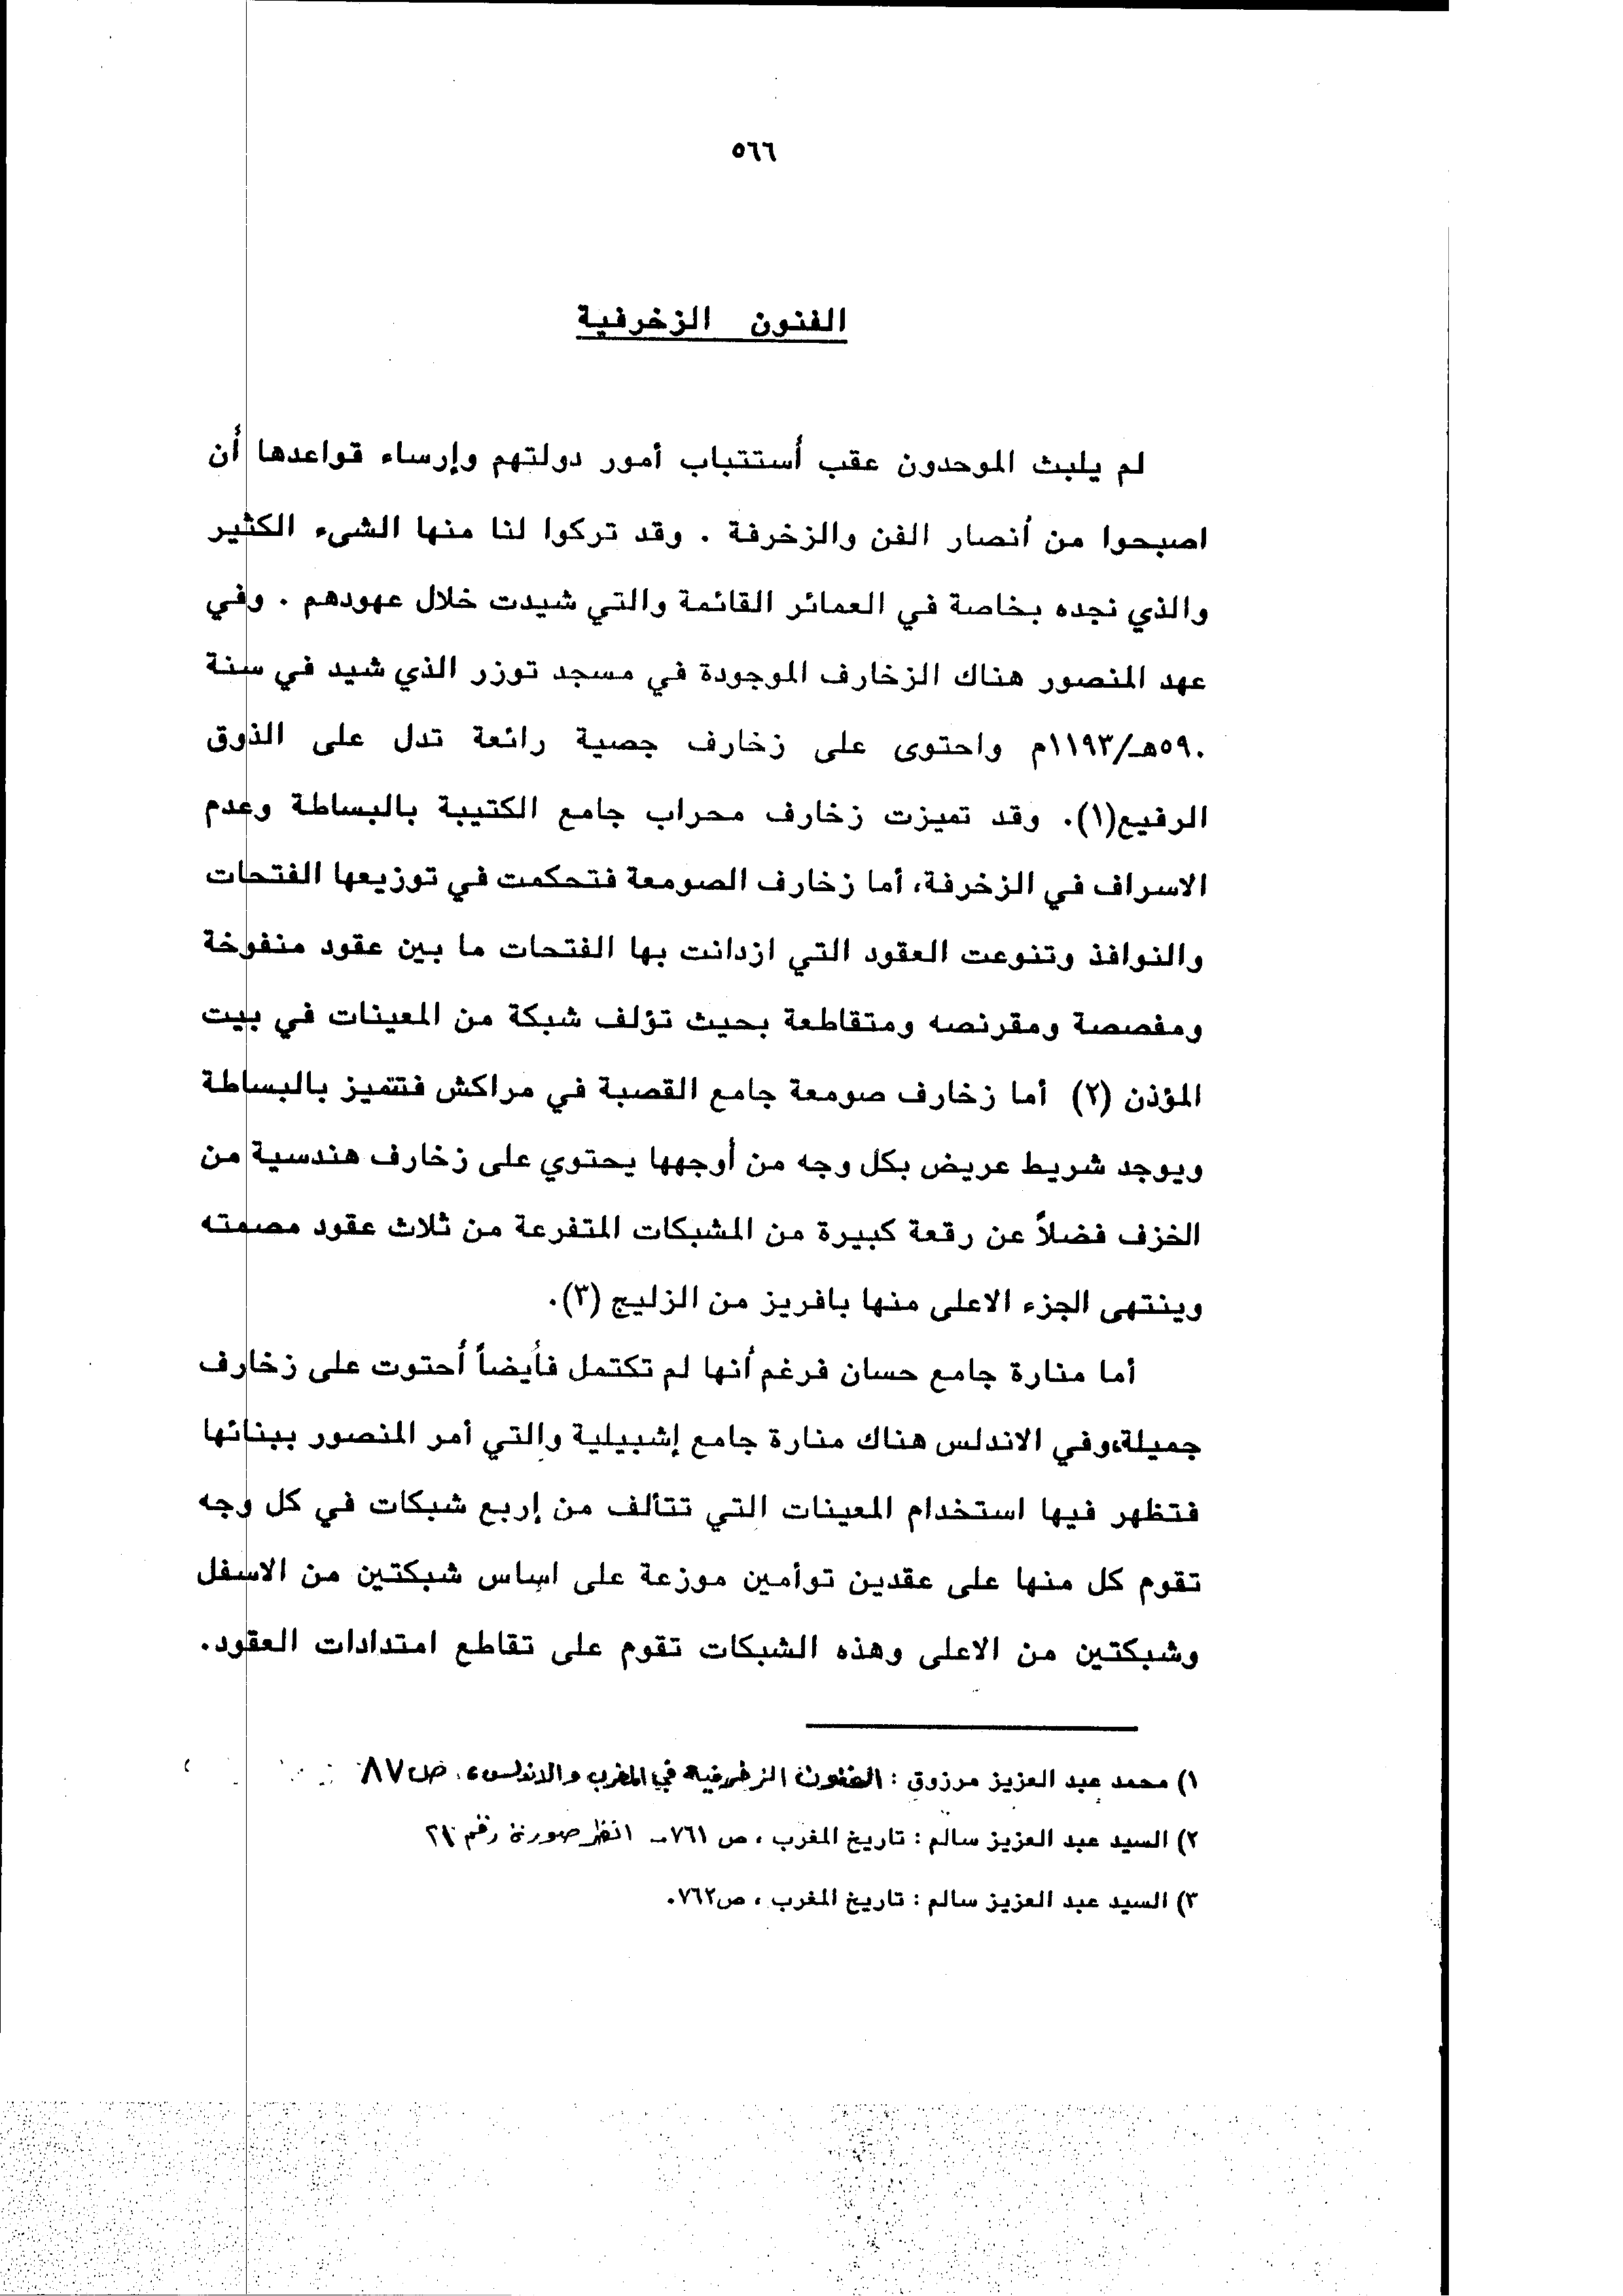 ٥٦٦
الفنون الزخرفية
لم يلبث الموحدون عقب أستتباب أمور دولتهم وإرساء قواعدها أن
اصبحوا من أنصار الفن والزخرفة . وقد تركوا لنا منها الشيء الكثير
والذي نجده بخاصة في العمائر القائمة والتي شيدت خلال عهودهم . وفي
عهد المنصور هناك الزخارف الموجودة في مسجد توزر الذي شيد في سنة
٥٩٠هـ/١١٩٣م واحتوى على زخارف جصية رائعة تدل على الذوق
الرفيع(١). وقد تميزت زخارف محراب جامع الكتيبة بالبساطة وعدم
الاسراف في الزخرفة، أما زخارف الصومعة فتحكمت في توزيعها الفتحات
والنوافذ وتنوعت العقود التي ازدانت بها الفتحات ما بين عقود منفوخة
ومفصصة ومقرنصه ومتقاطعة بحيث تؤلف شبكة من المعينات في بيت
المؤذن (٢) أما زخارف صومعة جامع القصبة في مراكش فتتميز بالبساطة
ويوجد شريط عريض بكل وجه من أوجهها يحتوي على زخارف هندسية من
الخزف فضلاً عن رقعة كبيرة من المشبكات المتفرعة من ثلاث عقود مصمته
وينتهى الجزء الاعلى منها بافريز من الزليج (٣).
أما منارة جامع حسان فرغم أنها لم تكتمل فأيضاً أحتوت على زخارف
جميلة،وفي الاندلس هناك منارة جامع إشبيلية والتي أمر المنصور ببنائها
فتظهر فيها استخدام المعينات التي تتألف من إربع شبكات في كل وجه
تقوم كل منها على عقدين توأمين موزعة على اساس شبكتين من الاسفل
وشبكتين من الاعلى وهذه الشبكات تقوم على تقاطع امتدادات العقود.
١) محمد عبد العزيز مرزوق : الفنون الزخرفية في المغرب والاندلس ، ص ٨٧
٢) السيد عبد العزيز سالم : تاريخ المغرب ، ص ٧٦١ـ انظر صورة رقم
٣) السيد عبد العزيز سالم : تاريخ المغرب ، ص٧٦٢.